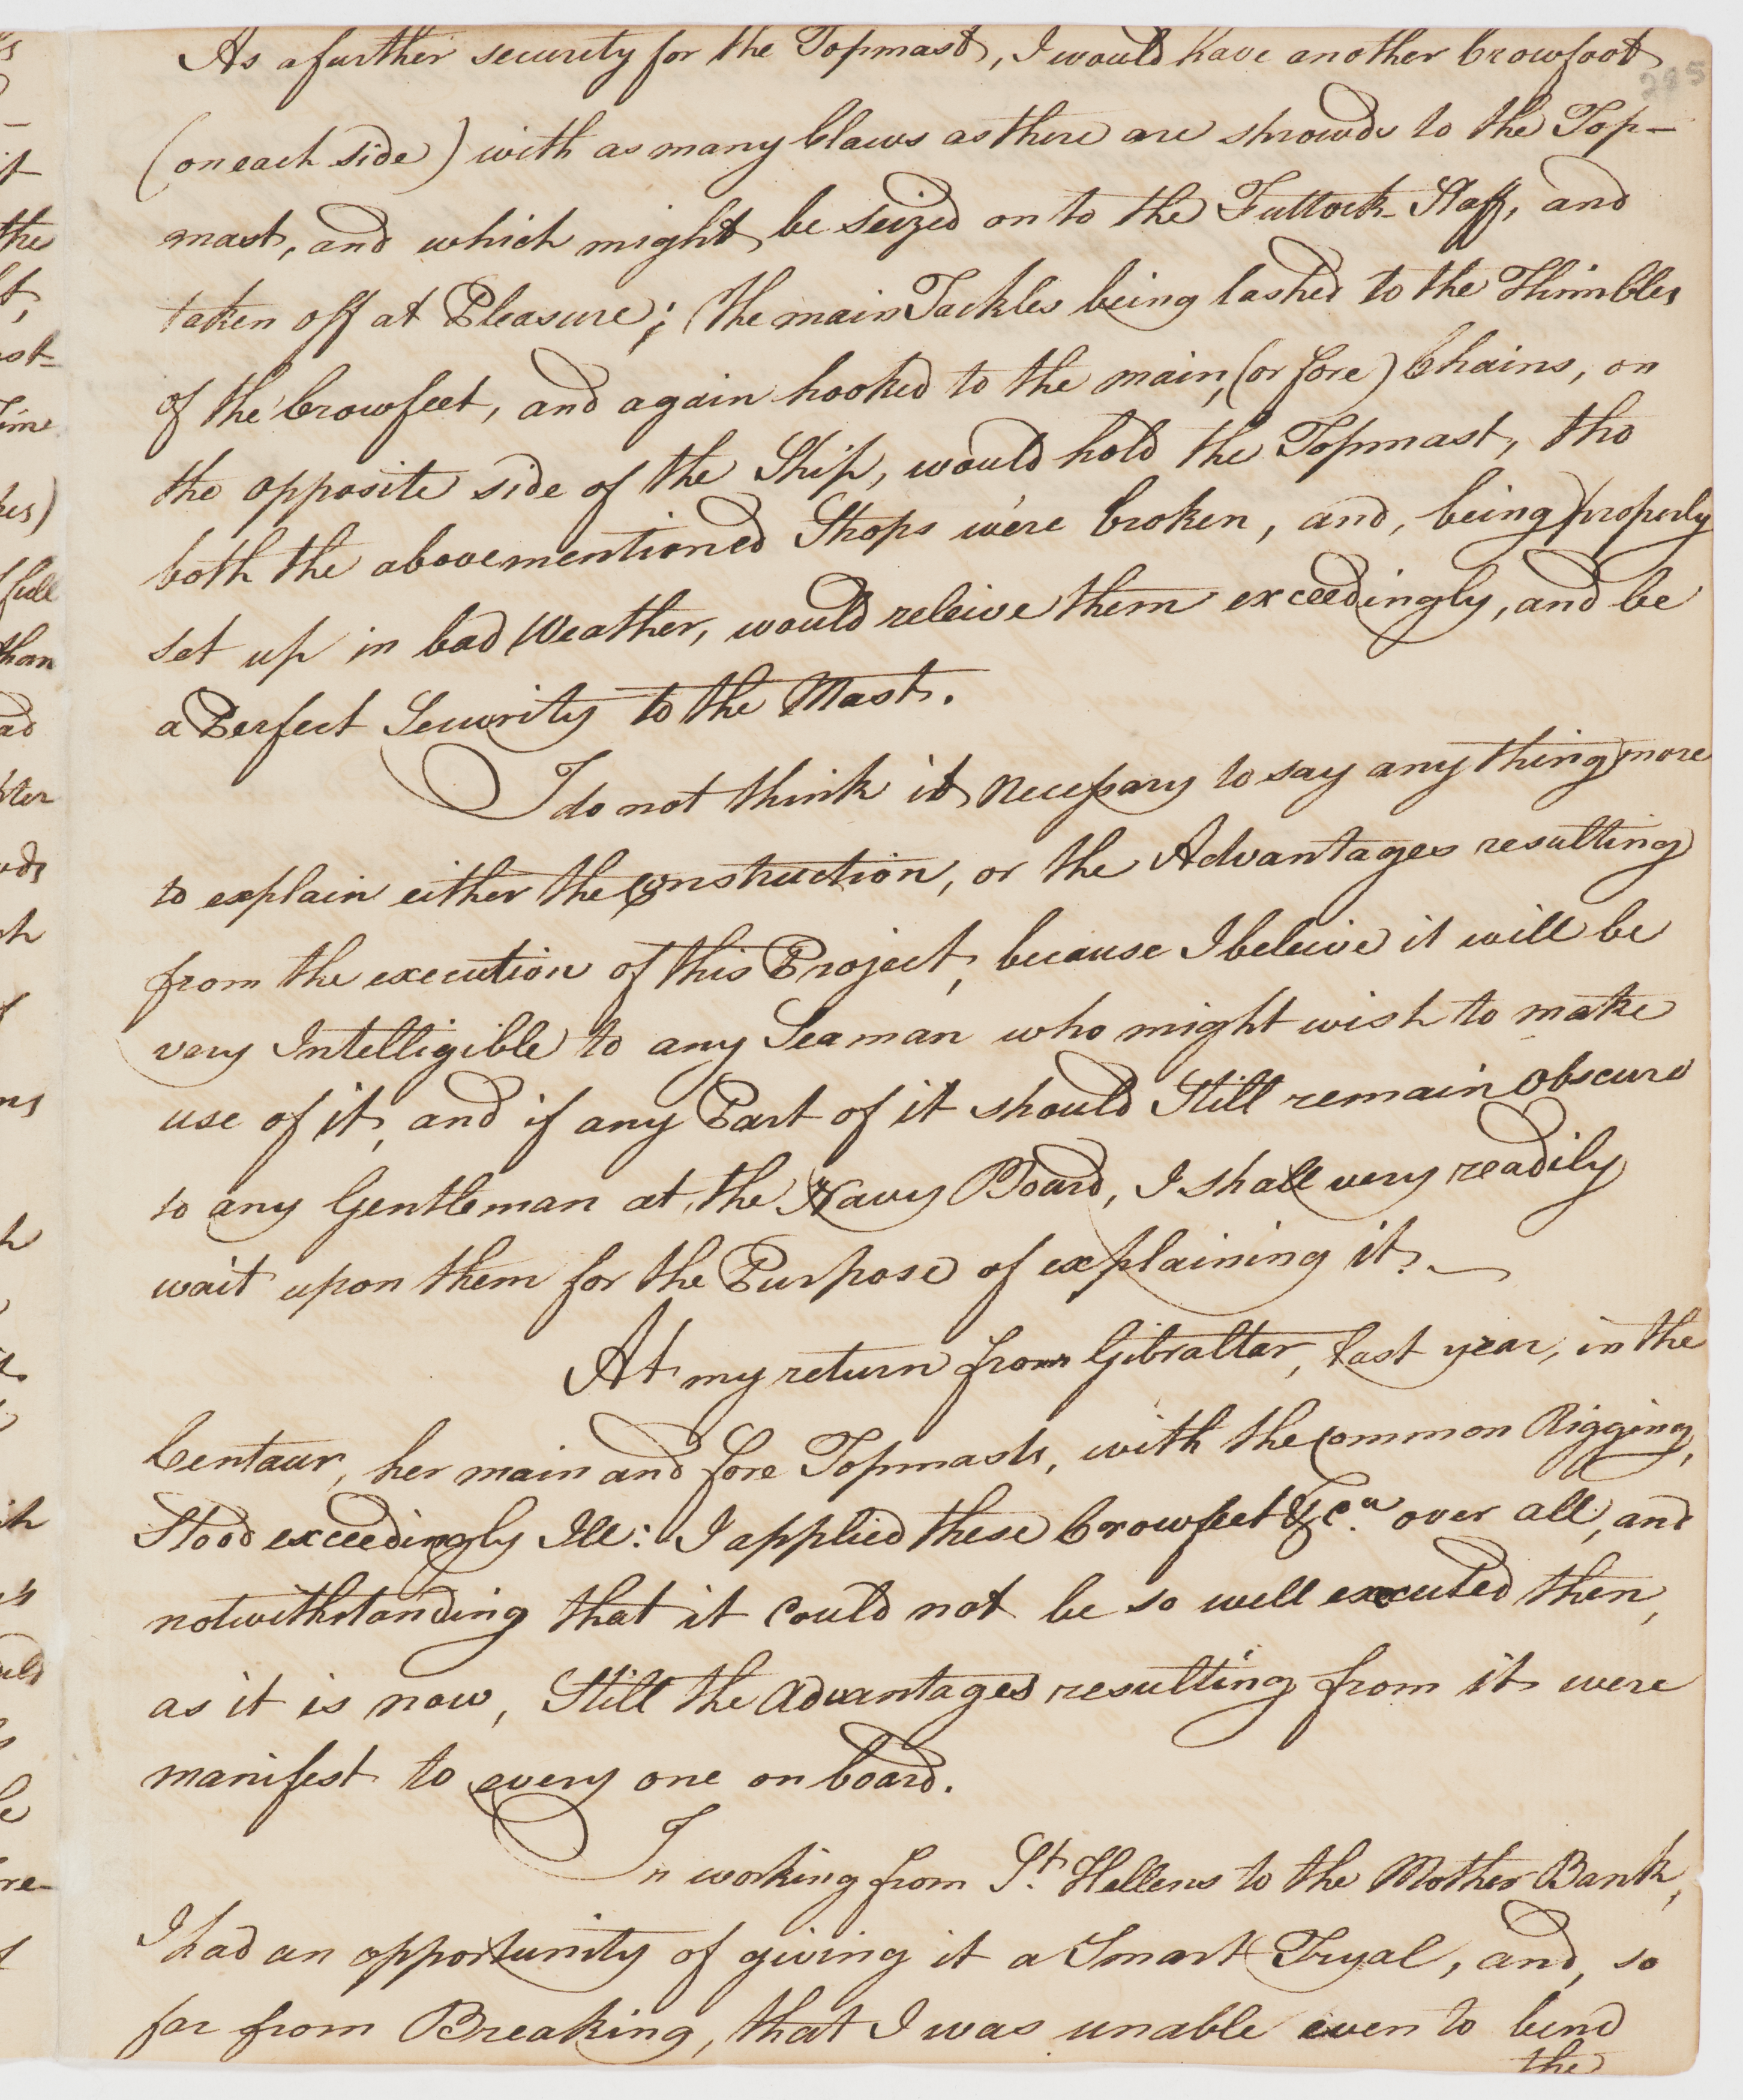 As a further security for the Topmast, I would have another Crowfoot
285
(on each side) with as many Claws as there are shrowds to the Top-
mast, and which might be seized on to the Futtock Staff, and
taken off at Pleasure; The main Tackles being lashed to the Thimbles
of the Crowfeet, and again hooked to the main, (or fore) Chains, on
the opposite side of the Ship, would hold the Topmast, tho
both the abovementioned Stops were broken, and, being properly
set up in bad Weather, would releive them exceedingly, and be
a Perfect Security to the Mast.
I do not think it necessary to say any thing more
to explain either the Construction, or the Advantages resulting
from the execution of this Project, because I beleive it will be
very Intelligible to any Seaman who might wish to make
use of it, and if any Part of it should Still remain Obscure
to any Gentleman at the Navy Board, I shall very readily
wait upon them for the Purpose of explaining it.
At my return from Gibraltar, last year, in the
Centaur, her main and fore Topmasts, with the Common Rigging,
Stood exceedingly Ill: I applied these Crowfeet &ca. over all, and
notwithstanding that it Could not be so well executed then,
as it is now, Still the Advantages resulting from it were
manifest to every one on board.
In working from St. Hellens to the Mother Bank,
I had an opportunity of giving it a Smart Tryal, and, so
far from Breaking, that I was unable even to bend
the